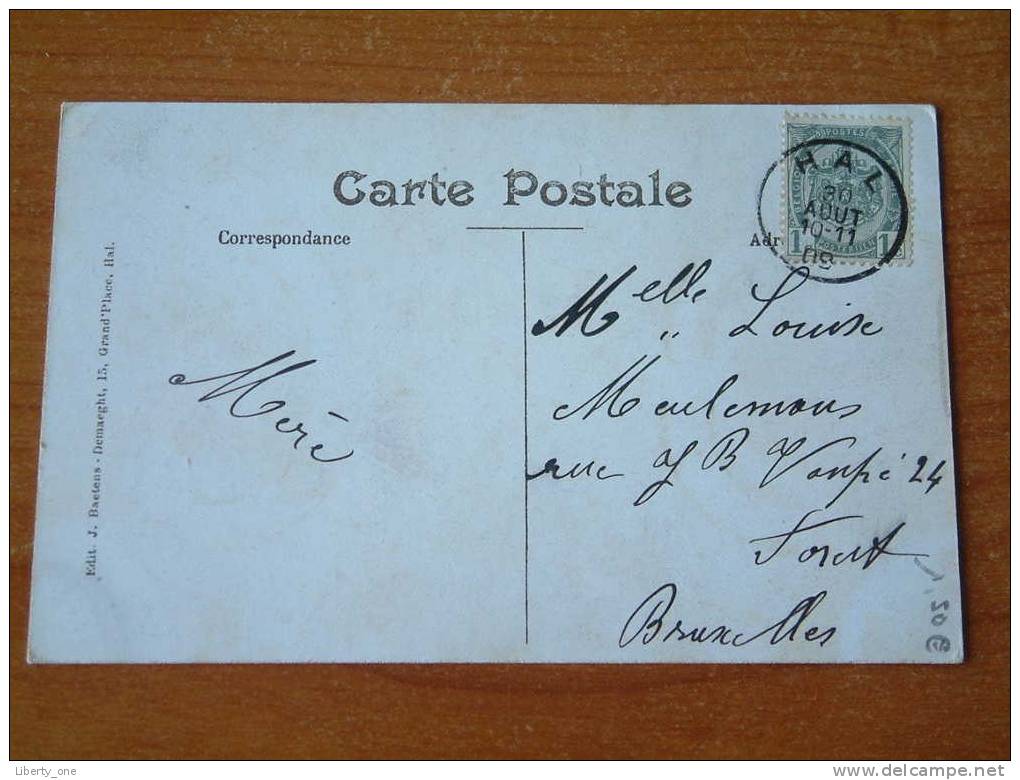 Carte Postale
Correspondance
Adr
HAL
30
AOUT
10-11
08
POSTES
1 1
Edit. J. Baetens-Demaeght, 15, Grand'Place, Hal.
Melle Louise
Meulemans
rue J B Vanpé 24
Forest
Bruxelles
Méré
1,20€
Liberty_one
www.delcampe.net